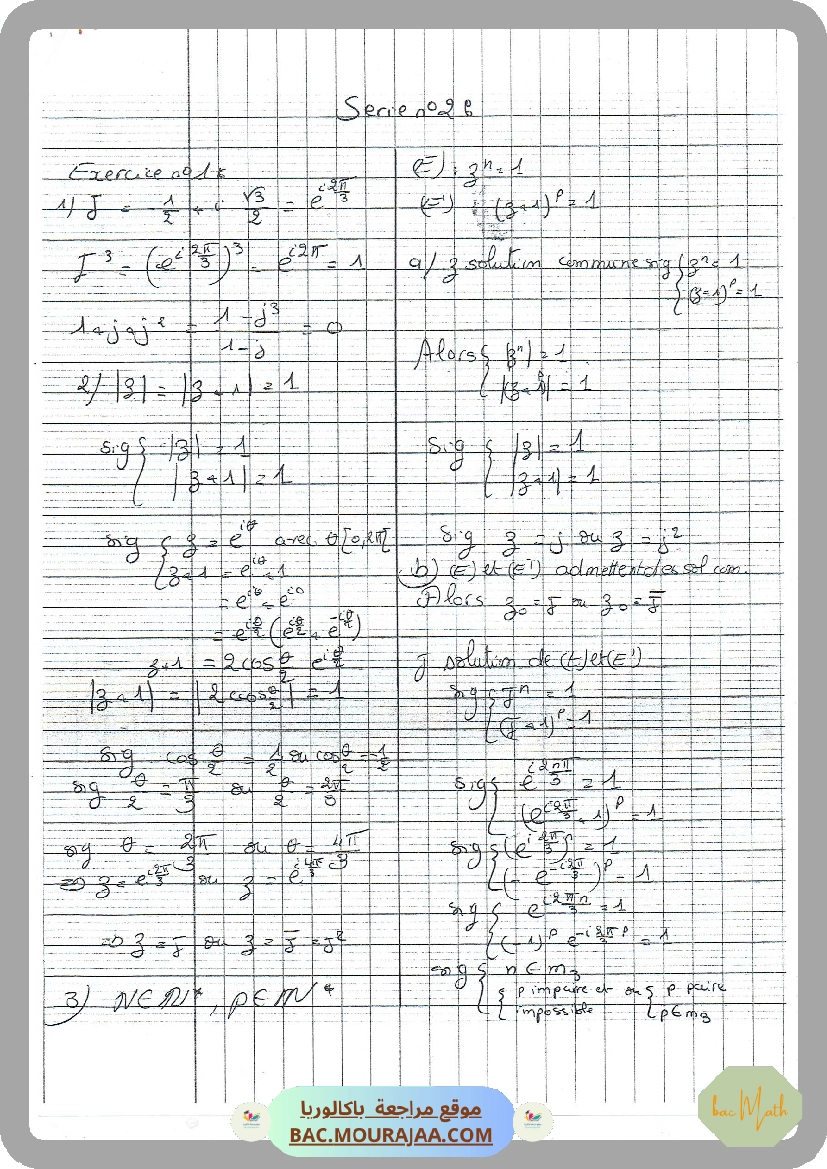 Serie n°2 :
Exercice n°1 :
1) J = -1/2 + i √3/2 = e^{i 2π/3}
J^3 = (e^{i 2π/3})^3 = e^{i2π} = 1
1+j+j^2 = (1-j^3)/(1-j) = 0
2) |z| = |z+1| = 1
sig { |z| = 1
|z+1| = 1
sig { z = e^{iθ} avec θ [0,2π[
z+1 = e^{iθ}+1
= e^{iθ} + e^{i0}
= e^{iθ/2} (e^{iθ/2} + e^{-iθ/2})
z+1 = 2cos θ/2 e^{iθ/2}
|z+1| = |2cos θ/2| = 1
sig cos θ/2 = 1/2 ou cos θ/2 = -1/2
sig θ/2 = π/3 ou θ/2 = 2π/3
sig θ = 2π/3 ou θ = 4π/3
=> z = e^{i 2π/3} ou z = e^{i 4π/3}
=> z = j ou z = \bar{j} = j^2
3) n∈IN*, p∈IN*
(E) : z^n = 1
(E') : (z+1)^p = 1
a/ z solution commune sig { z^n = 1
(z+1)^p = 1
Alors { |z^n| = 1
|(z+1)^p| = 1
sig { |z| = 1
|z+1| = 1
sig z = j ou z = j^2
b) (E) et (E') admettent des sol com.
Alors z_0 = j ou z_0 = \bar{j}
j solution de (E) et (E')
sig { j^n = 1
(j+1)^p = 1
sig { e^{i 2nπ/3} = 1
(e^{i 2π/3} + 1)^p = 1
sig { (e^{i 2π/3})^n = 1
(- e^{-i 2π/3})^p = 1
sig { e^{i 2πn/3} = 1
(-1)^p e^{-i 2π/3 p} = 1
sig { n ∈ m3
{ p impaire et ou { p paire
impossible p∈m3
موقع مراجعة باكالوريا
BAC.MOURAJAA.COM
bac Math